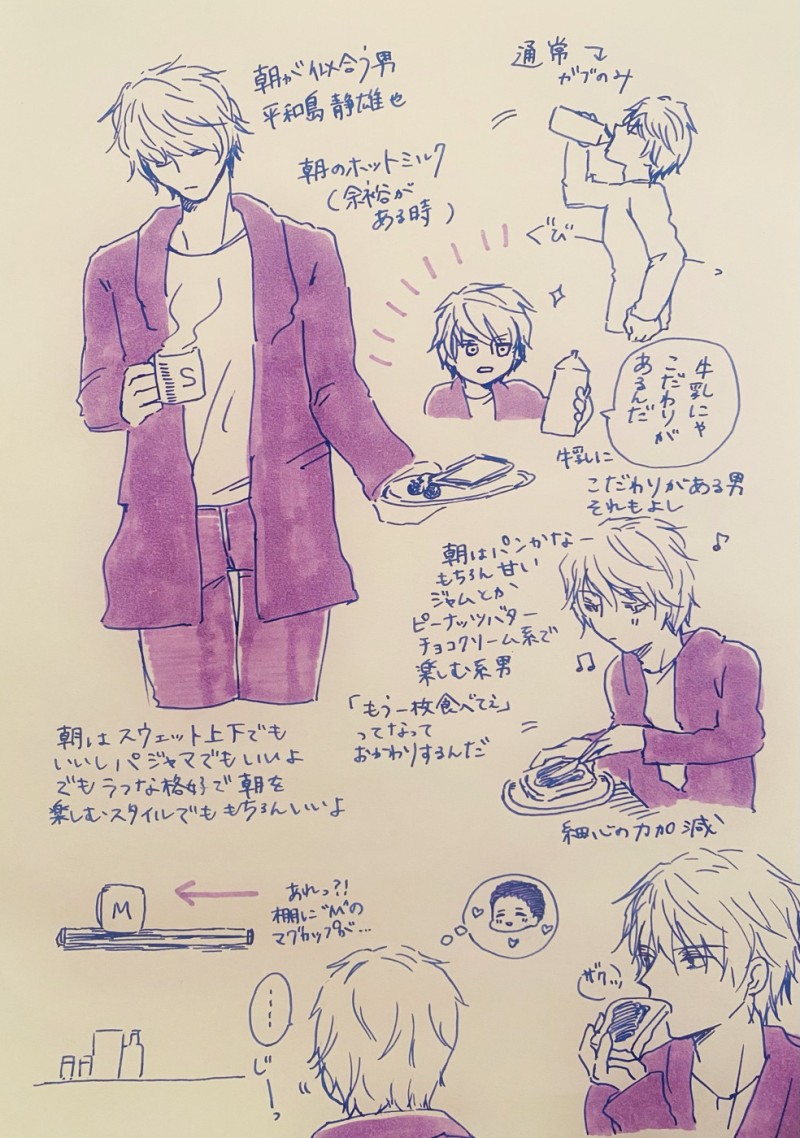 朝が似合う男
平和島静雄也
通常
ガブのみ
朝のホットミルク
(余裕が
ある時)
ぐびー
S
牛乳にゃ
こだわりが
あるんだ
牛乳に
こだわりがある男
それもよし
朝はパンかなー
もちろん甘い
ジャムとか
ピーナッツバター
チョコクリーム系で
楽しむ系男
「もう一枚食べてぇ」
ってなって
おかわりするんだ
細心の力加減
朝はスウェット上下でも
いいしパジャマでもいいよ
でもラフな格好で朝を
楽しむスタイルでももちろんいいよ
M
あれっ?!
棚に"M"の
マグカップが…
じーっ
ザクッ